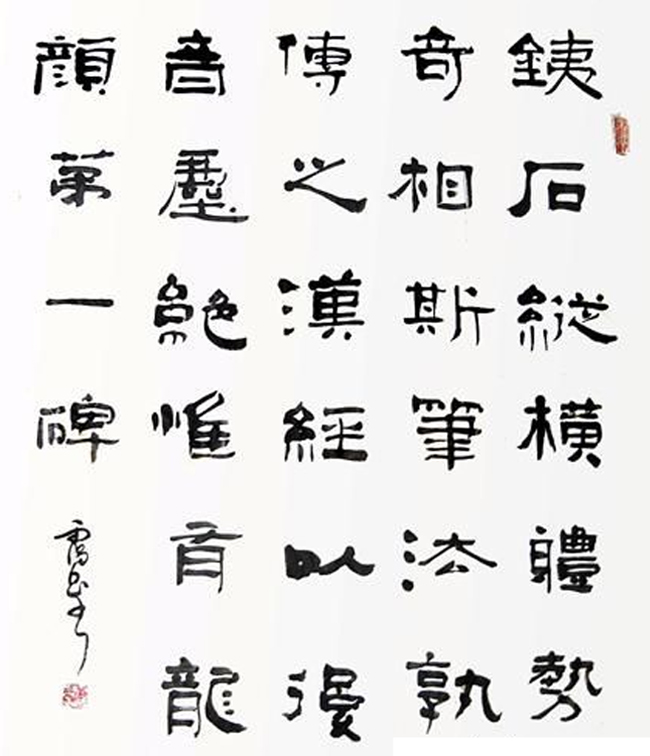 銕石縱橫體勢
奇相斯筆法孰
傳之漢經以後
音塵絕惟有龍
顏第一碑